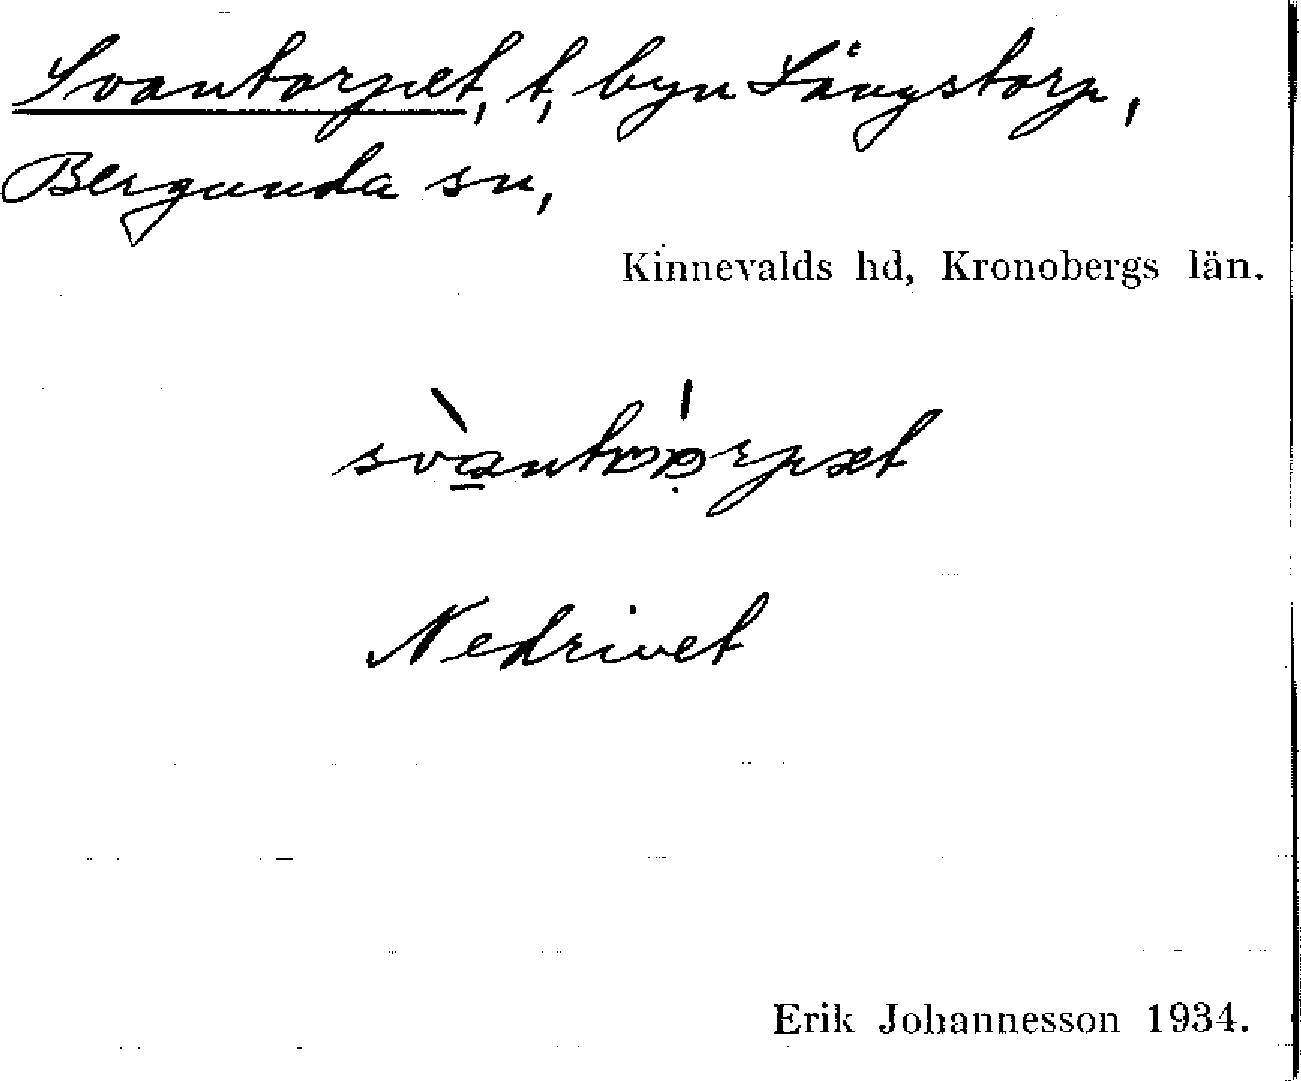 Svantorpet, t, byn Långstorp,
Bergunda sn,
Kinnevalds hd, Kronobergs län.
Nedrivet
Erik Johannesson 1934.